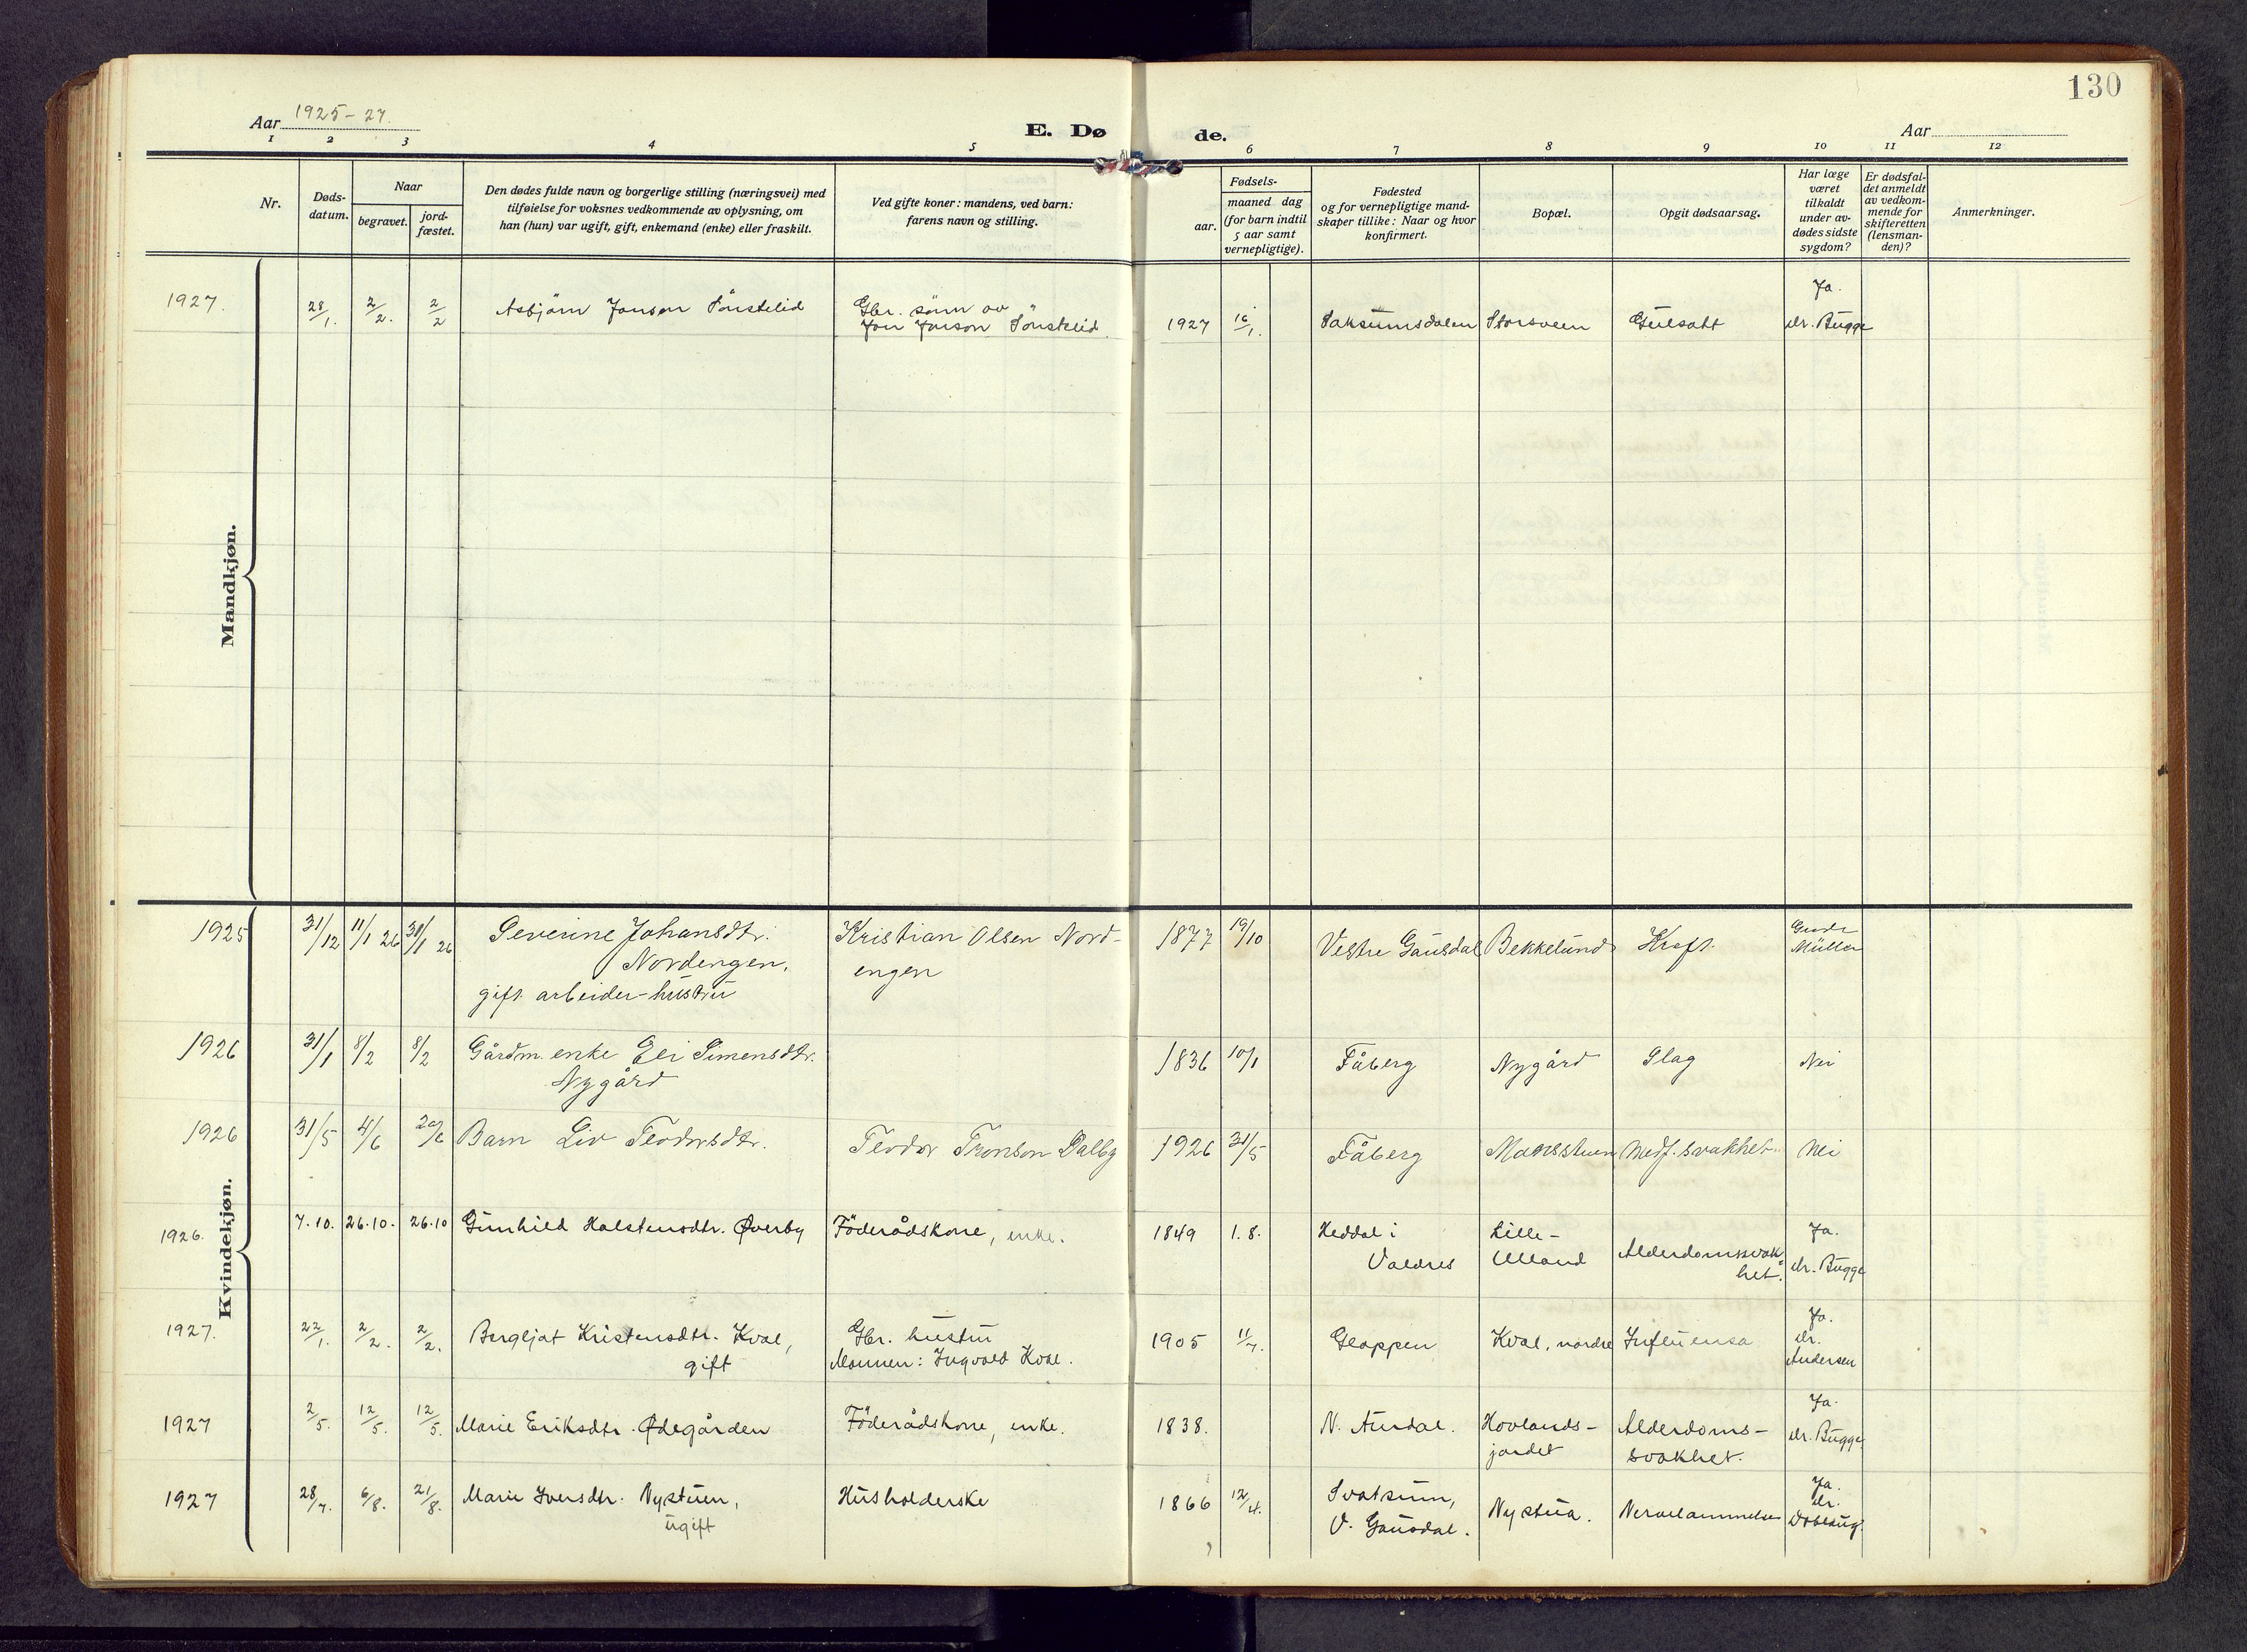 130
Aar 1925-27.
E. Dø de.
Aar
1 2 3 4 5 6 7 8 9 10 11 12
Nr.
Døds-
datum.
Naar
begravet.
jord-
fæstet.
Den dødes fulde navn og borgerlige stilling (næringsvei) med
tilføielse for voksnes vedkommende av oplysning, om
han (hun) var ugift, gift, enkemand (enke) eller fraskilt.
Ved gifte koner: mandens, ved barn:
farens navn og stilling.
aar.
Fødsels-
maaned dag
(for barn indtil
5 aar samt
vernepligtige).
Fødested
og for vernepligtige mand-
skaper tillike: Naar og hvor
konfirmert.
Bopæl.
Opgit dødsaarsag.
Har læge
været
tilkaldt
under av-
dødes sidste
sygdom?
Er dødsfal-
det anmeldt
av vedkom-
mende for
skifteretten
(lensman-
den)?
Anmerkninger.
Mandkjøn.
1927. 28/1. 2/2. 2/2 Asbjørn Jonsen Sönstelid
Gbr. sönn av
Jon Jonson Sönstelid
1927 16/1. Saksumsdalen Storsveen Gulsott
Ja.
dr. Bugge
Kvindekjøn.
1925 31/12 11/1 26 31/1 26 Severine Johansdtr.
Nordengen,
gift arbeider-hustru
Kristian Olsen Nord-
engen
1877 19/10 Vestre Gausdal Bekkelund Kreft.
Müller
1926 31/1 8/2 8/2 Gårdm. enke Eli Simensdtr.
Nygård
1836 10/1 Fåberg Nygård Slag Nei
1926 31/5 4/6 20/6 Barn Liv Teodorsdtr.
Teodor Tronson Dalby
1926 31/5 Fåberg Mansstuen Medf. svakhet. Nei
1926. 7.10. 26.10. 26.10 Gunhild Halstensdtr. Øverby
Föderådskone, enke.
1849 1.8. Heddal i
Valdres
Lille-
Ulland
Alderdomssvak-
het.
Ja.
dr. Bugge
1927. 22/1. 2/2. 2/2. Bergljot Kristensdtr. Kval,
gift
Gbr. hustru
Mannen: Ingvald Kval.
1905 11/7. Gloppen Kval, nordre Influensa
Ja.
dr.
Andersen
1927 2/5. 12/5. 12/5. Marie Eriksdtr. Ødegården
Föderådskone, enke.
1838. N. Aurdal.
Hovlands-
jordet
Alderdoms-
svakhet.
Ja.
dr. Bugge
1927 28/7. 6/8. 21/8. Marie Iversdtr. Nystuen,
ugift
Husholderske
1866 12/4. Svatsum,
V. Gausdal.
Nystua. Nervelammelse
Ja.
dr.